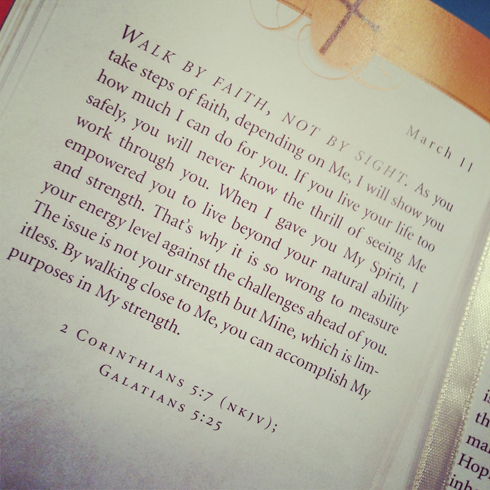 March 11
WALK BY FAITH, NOT BY SIGHT. As you
take steps of faith, depending on Me, I will show you
how much I can do for you. If you live your life too
safely, you will never know the thrill of seeing Me
work through you. When I gave you My Spirit, I
empowered you to live beyond your natural ability
and strength. That's why it is so wrong to measure
your energy level against the challenges ahead of you.
The issue is not your strength but Mine, which is lim-
itless. By walking close to Me, you can accomplish My
purposes in My strength.
2 CORINTHIANS 5:7 (NKJV);
GALATIANS 5:25
th
Hop